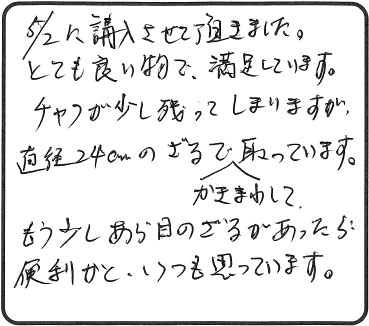 5/2に購入させて頂きました。
とても良い物で、満足しています。
チャフが少し残ってしまりますが、
直径24cmのざるで取っています。
かきまわして、
もう少しあら目のざるがあったら
便利かと、いつも思っています。